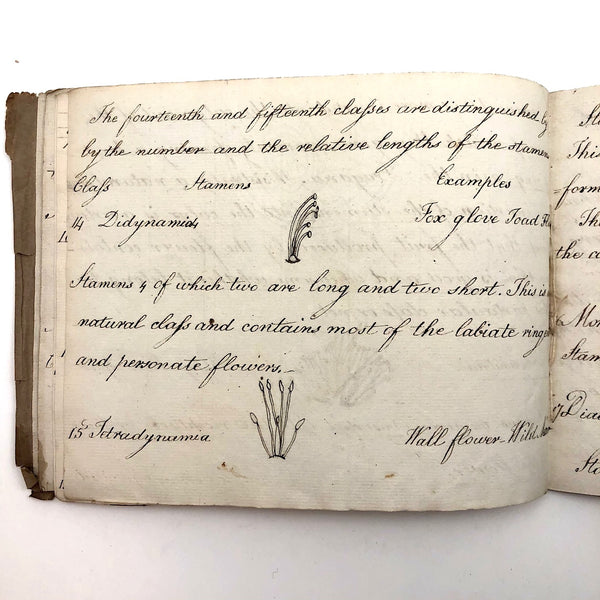 The fourteenth and fifteenth claſses are distinguished by
by the number and the relative lengths of the stamens
Claſs Stamens Examples
14 Didynamia 4 Fox glove Toad
Stamens 4 of which two are long and two short. This is
natural claſs and contains most of the labiate
and personate flowers. _
15 Tetradynamia Wall flower - Wild
This
form
The
the
Mon
Stam
17 Diad